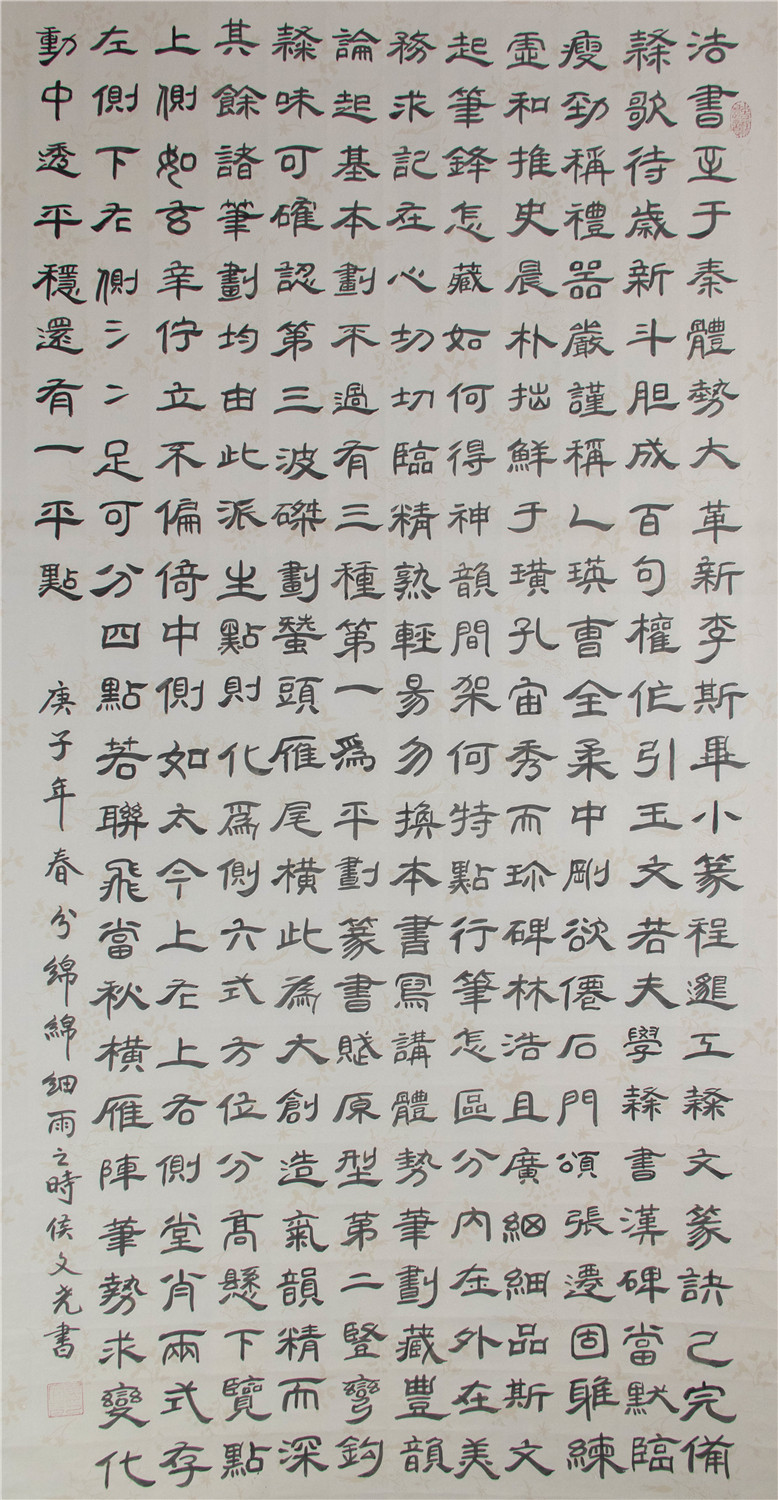 法書至于秦體勢大革新李斯畢小篆程邈工隸文篆訣已完備
隸歌待歲新斗胆成百句權作引玉文若夫學隸書漢碑當默臨
瘦勁稱禮器嚴謹稱乙瑛曹全柔中剛欲僊石門頌張遷固雖練
虛和推史晨朴拙鮮于璜孔宙秀而珎碑林浩且廣細細品斯文
起筆鋒怎藏如何得神韻間架何特點行筆怎區分內在外在美
務求記在心切切臨精熟輕易勿換本書寫講體勢筆劃藏豐韻
論起基本劃不過有三種第一爲平劃篆書賦原型第二豎彎鈎
隸味可確認第三波磔劃蠶頭雁尾橫此為大創造氣韻精而深
其餘諸筆劃均由此派生點則化爲側六式方位分高懸下覽點
上側如玄辛佇立不偏倚中側如太今上左上右側堂肖兩式存
左側下右側氵冫足可分四點若聯飛當秋橫雁陣筆勢求變化
動中透平穩還有一平點
庚子年春分綿綿細雨之時侯文光書